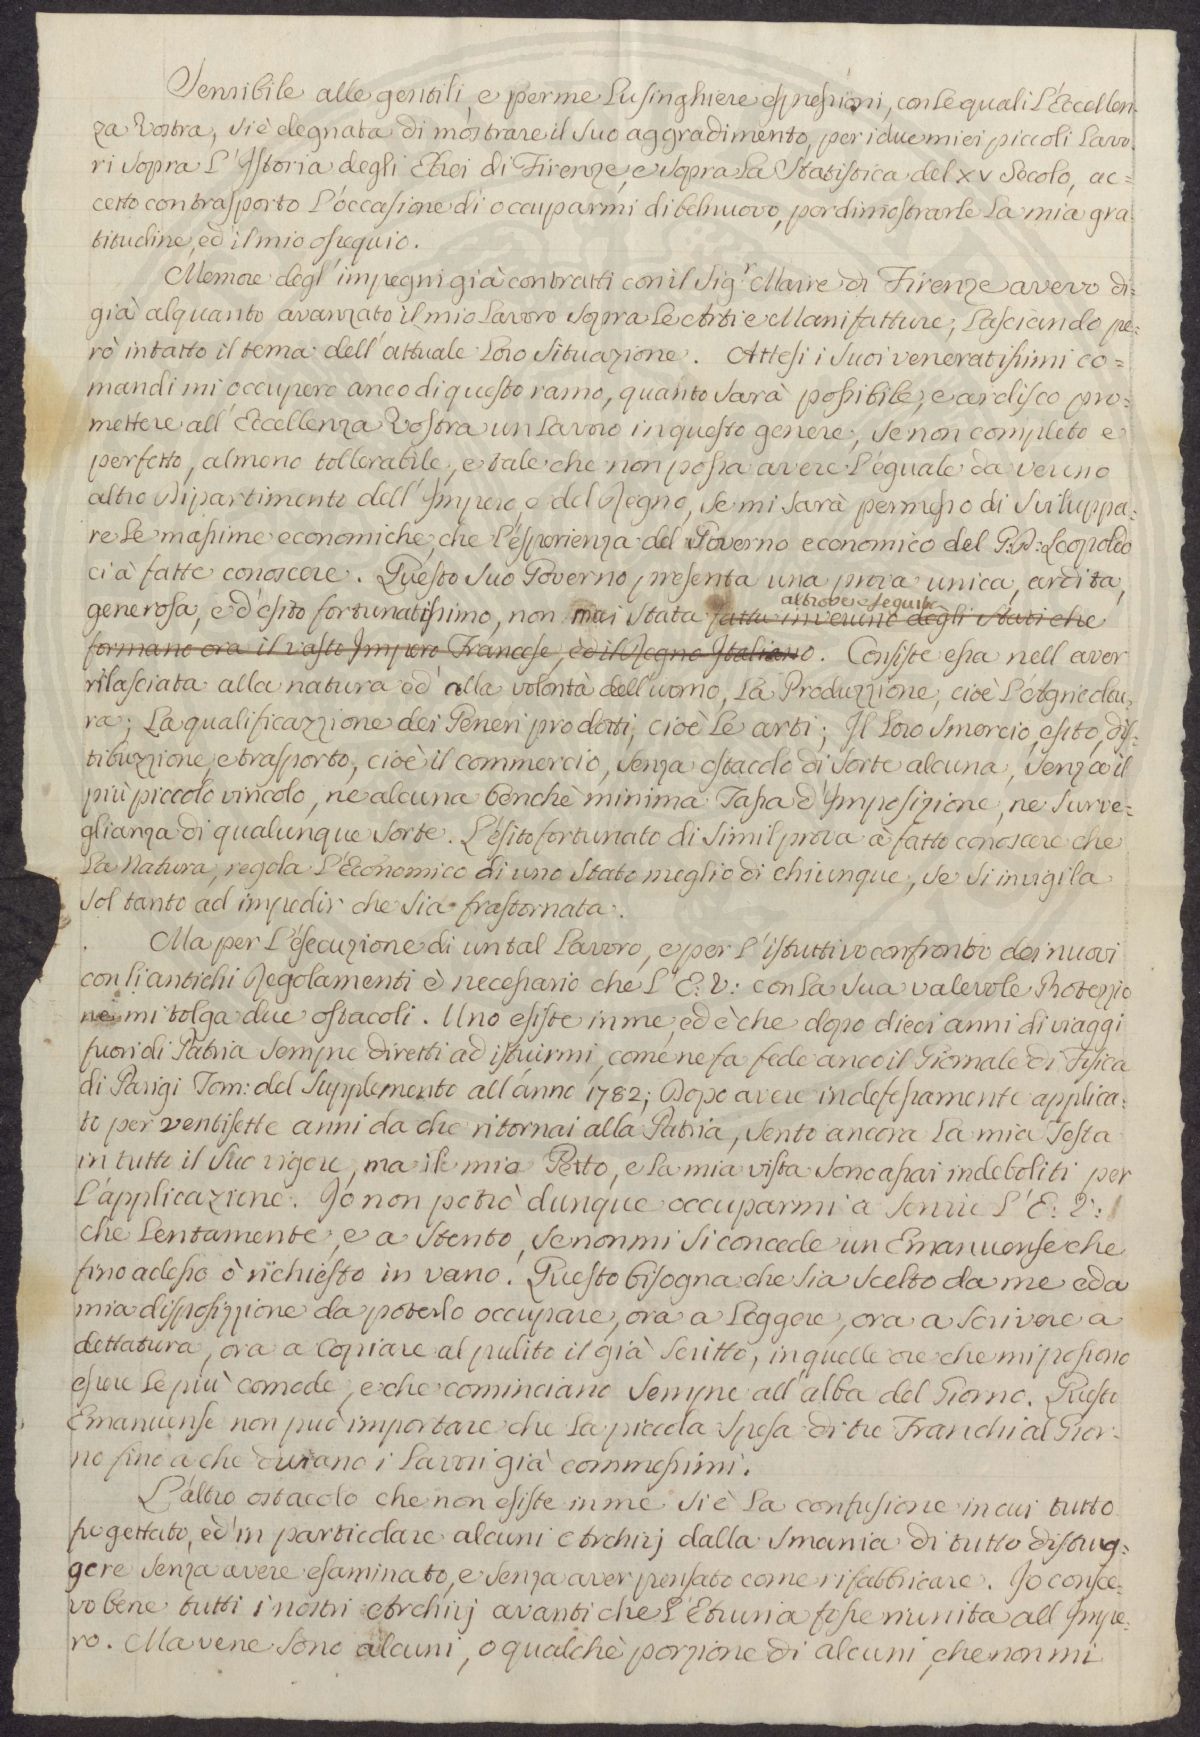 Sensibile alle gentili, e per me Lusinghiere espressioni, con le quali L'Eccellen-
za Vostra, si è degnata di mostrare il suo aggradimento, per i due miei piccoli Lavo-
ri sopra L'Istoria degli Ebrei di Firenze, e sopra La Statistica del XV Secolo, ac=
cetto con trasporto L'occasione di occuparmi di belnuovo, per dimostrarle La mia gra-
titudine, ed il mio ossequio.
Memore degl'impegni già contratti con il Sig.r Maire di Firenze avevo di-
già alquanto avanzato il mio Lavoro sopra Le Arti e Manifatture, Lasciando pe-
rò intatto il tema dell'attuale Loro situazione. Attesi i suoi veneratissimi co=
mandi mi occuperò anco di questo ramo, quanto sarà possibile, e ardisco pro-
mettere all'Eccellenza Vostra un Lavoro in questo genere, se non completo e
perfetto, almeno tollerabile, e tale che non possa avere L'eguale da veruno
altro Dipartimento dell'Impero, e del Regno, se mi sarà permesso di sviluppa-
re Le massime economiche, che L'esperienza del Governo economico del P: Leopoldo
ci à fatte conoscere. Questo suo Governo presenta una prova unica, ardita,
generosa, e d'esito fortunatissimo, non mai stata fatta in veruno degli Stati che
altrove eseguita
formano ora il vasto Impero Francese, ed il Regno Italiano. Consiste essa nell'aver
rilasciata alla natura ed alla volontà dell'uomo, La Produzzione, cioè L'Agricoltu-
ra; La qualificazzione dei Generi prodotti, cioè Le arti; Il Loro smercio, esito, dis-
tibuzzione, e trasporto, cioè il commercio, senza ostacolo di sorte alcuna, senza il
più piccolo vincolo, ne alcuna benchè minima Tassa d'Imposizione, ne surve-
glianza di qualunque sorte. L'esito fortunato di simil prova à fatto conoscere che
La Natura, regola L'Economico di uno stato meglio di chiunque, se si invigila
sol tanto ad impedir che sia frastornata.
Ma per L'esecuzione di un tal Lavoro, e per L'istuttivo confronto dei nuovi
con li antichi Regolamenti è necessario che L'E: V: con La sua valevole Protezzio
ne mi tolga due ostacoli. Uno esiste in me, ed è che dopo dieci anni di viaggi
fuori di Patria sempre diretti ad istuirmi, come ne fa fede anco il Giornale di Fisica
di Parigi Tom: del Supplemento all'anno 1782; Dopo avere indefessamente applica-
to per ventisette anni da che ritornai alla Patria, sento ancora La mia Testa
in tutto il suo vigore, ma il mio Petto, e La mia vista sono assai indeboliti per
L'applicazione. Io non potrò dunque occuparmi a servire L'E: V:
che Lentamente, e a stento, se non mi si concede un Emanuense che
fino adesso ò richiesto in vano. Questo bisogna che sia scelto da me e da
mia disposizzione da poterlo occupare, ora a Leggere, ora a scrivere a
dettatura, ora a copiare al pulito il già scritto, in quelle ore che mi possono
essere Le più comode, e che cominciano sempre all'alba del Giorno. Questo
Emanuense non può importare che La piccola spesa di tre Franchi al Gior-
no fino a che durano i Lavori già commessimi.
L'altro ostacolo che non esiste in me si è La confusione in cui tutto
fu gettato, ed in particolare alcuni Archivj dalla smania di tutto distrug-
gere senza avere esaminato, e senza aver pensato come rifabbricare. Io conosce-
vo bene tutti i nostri Archivj avanti che L'Etruria fosse riunita all'Impe-
ro. Ma vene sono alcuni, o qualche porzione di alcuni, che non mi